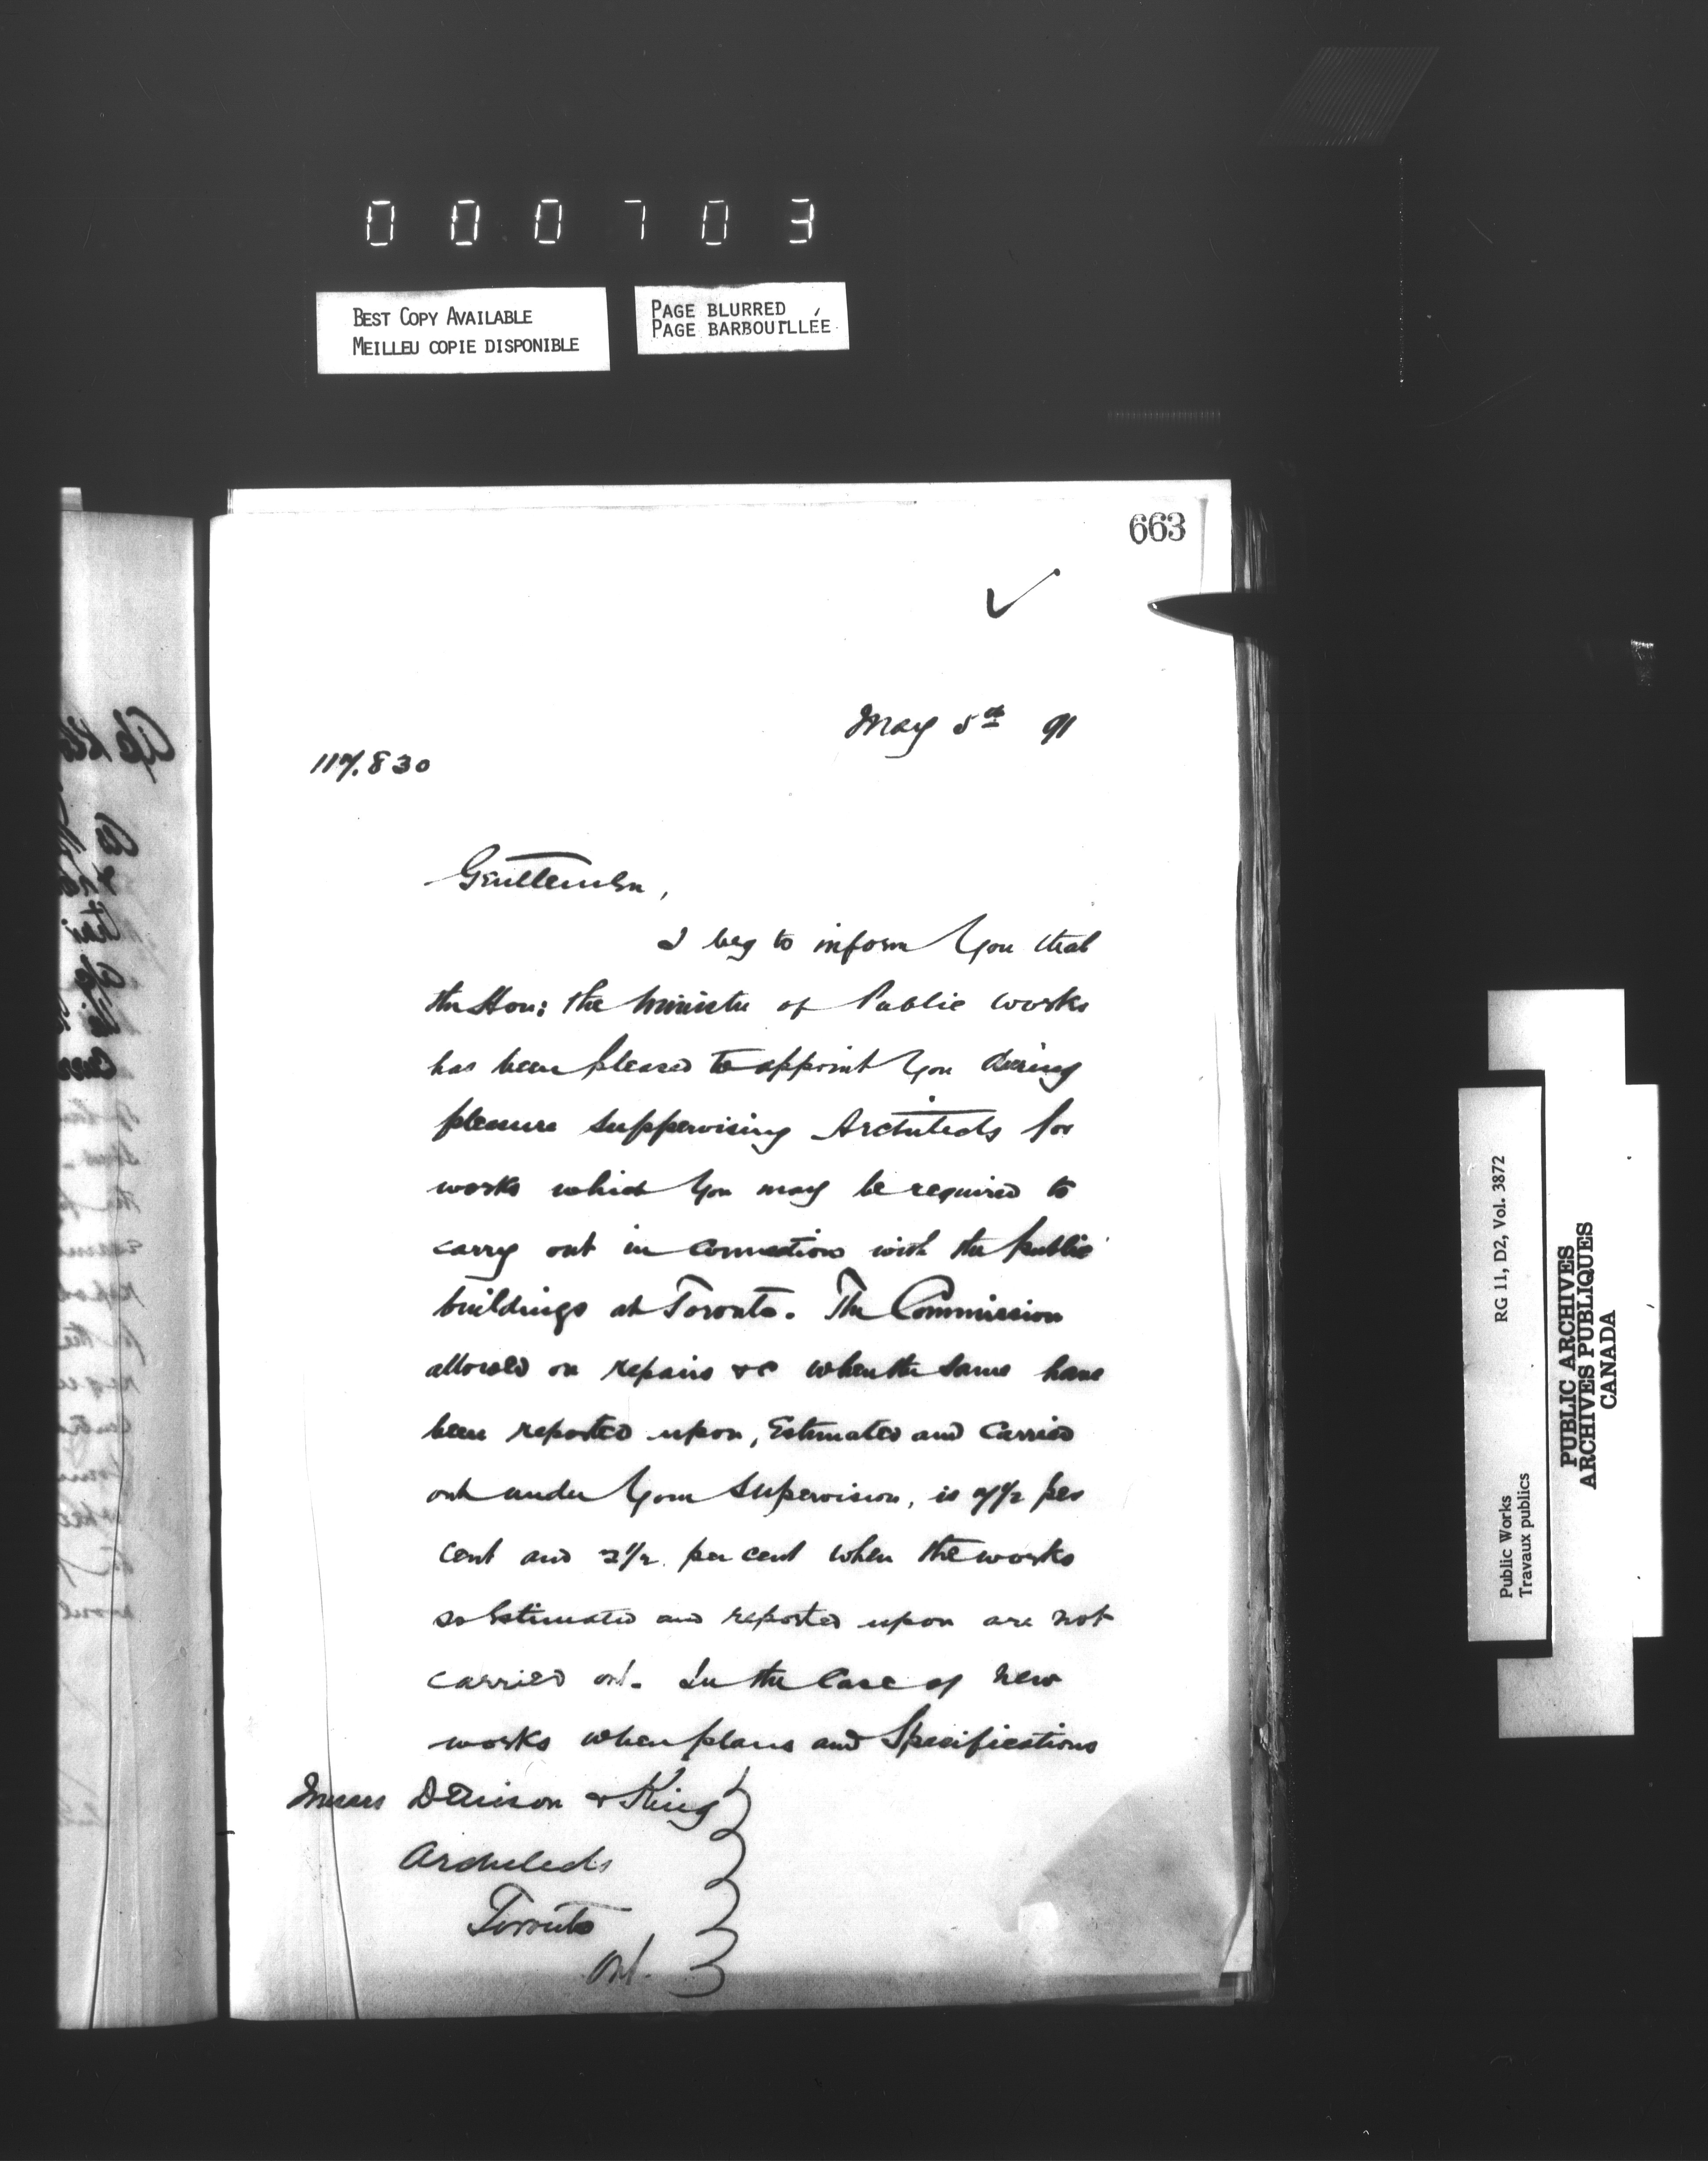 000703
BEST COPY AVAILABLE
MEILLEU COPIE DISPONIBLE
PAGE BLURRED
PAGE BARBOUILLÉE
663
May 5th 91
117.830
Gentlemen,
I beg to inform you that
the Hon: the Minister of Public Works
has been pleased to appoint you during
pleasure suppervising Architects for
works which you may be required to
carry out in connection with the public
buildings at Toronto. The Commission
allowed on repairs &c when the same have
been reported upon, Estimated and carried
out under your supervision, is 7½ per
cent and 2½ per cent when the works
so Estimated and reported upon are not
carried out. In the Case of new
works when plans and Specifications
Messrs Denison & King
Architects
Toronto
Ont.
RG 11, D2, Vol. 3872
Public Works
Travaux publics
PUBLIC ARCHIVES
ARCHIVES PUBLIQUES
CANADA